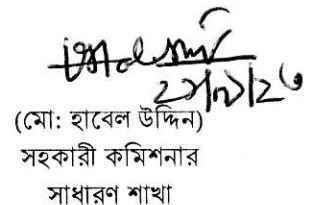 (মো: হাবেল উদ্দিন)
সহকারী কমিশনার
সাধারণ শাখা